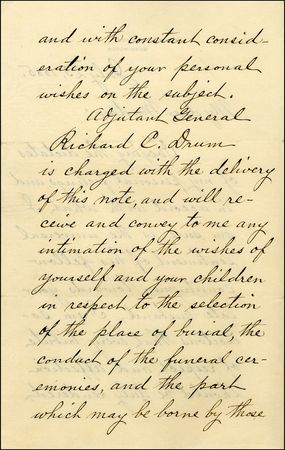 and with constant consid-
eration of your personal
wishes on the subject.
Adjutant General
Richard C. Drum
is charged with the delivery
of this note, and will re-
ceive and convey to me any
intimation of the wishes of
yourself and your children
in respect to the selection
of the place of burial, the
conduct of the funeral cer-
emonies, and the part
which may be borne by those